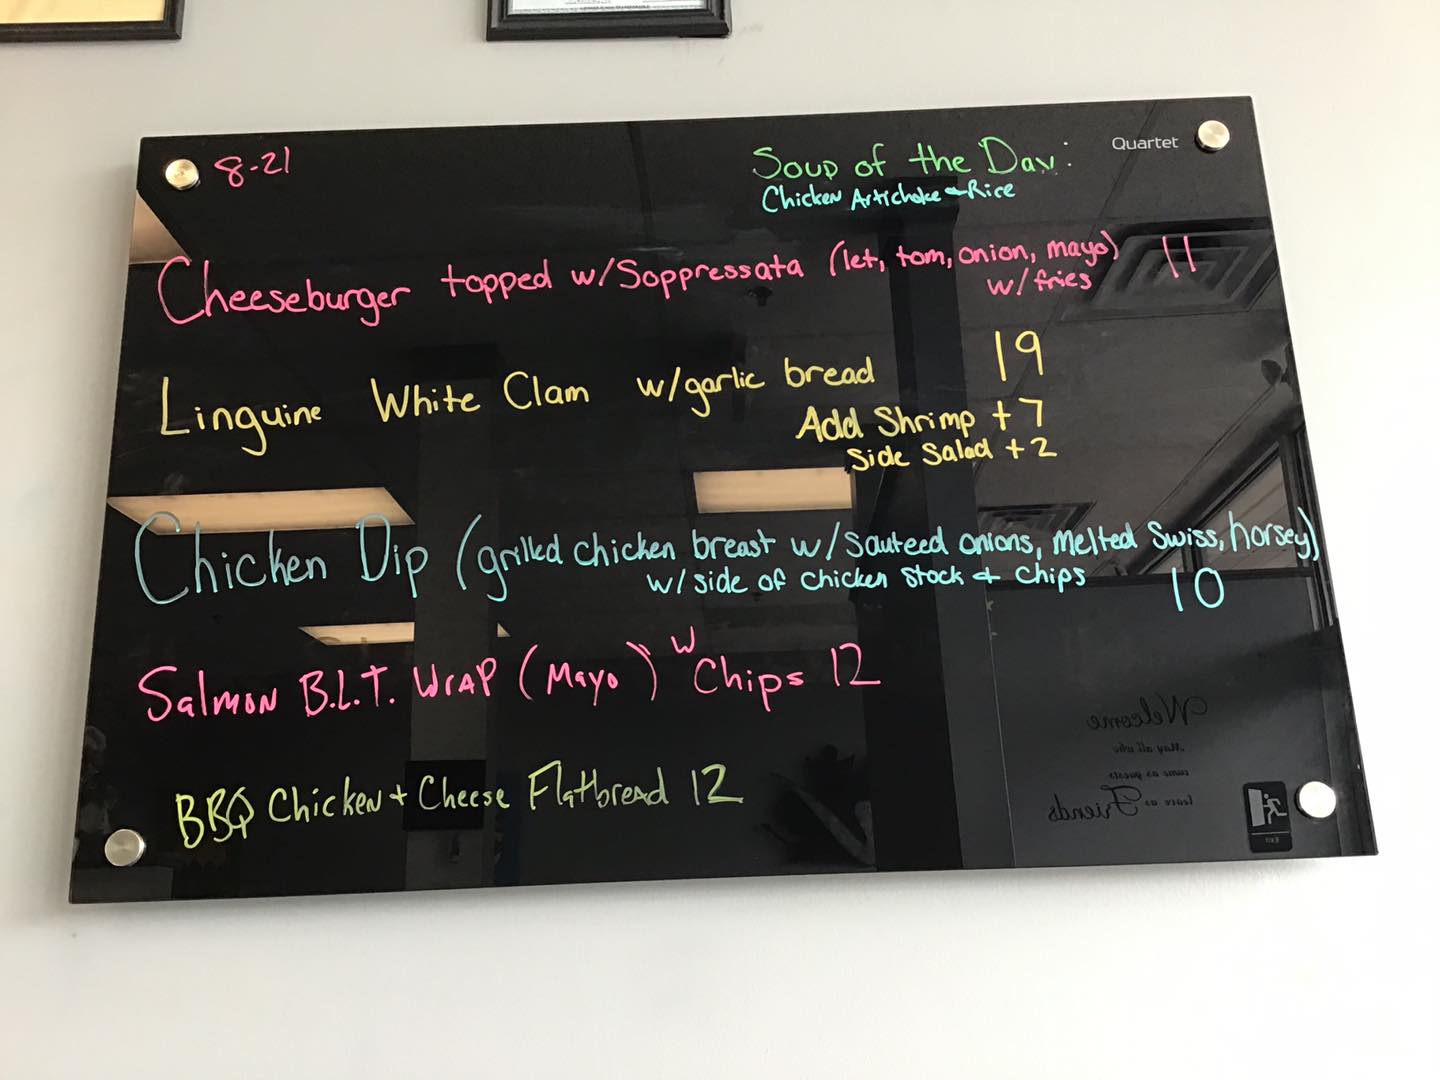 8-21
Quartet
Soup of the Day:
Chicken Artichoke + Rice
Cheeseburger topped w/Soppressata (let, tom, onion, mayo) 11
w/fries
Linguine White Clam w/garlic bread 19
Add Shrimp +7
Side Salad +2
Chicken Dip (grilled chicken breast w/sauteed onions, melted Swiss, horsey)
w/side of chicken stock + chips 10
Salmon B.L.T. Wrap (Mayo) w Chips 12
BBQ Chicken + Cheese Flatbread 12
Welcome
May all who
come as guests
leave as Friends
EXIT